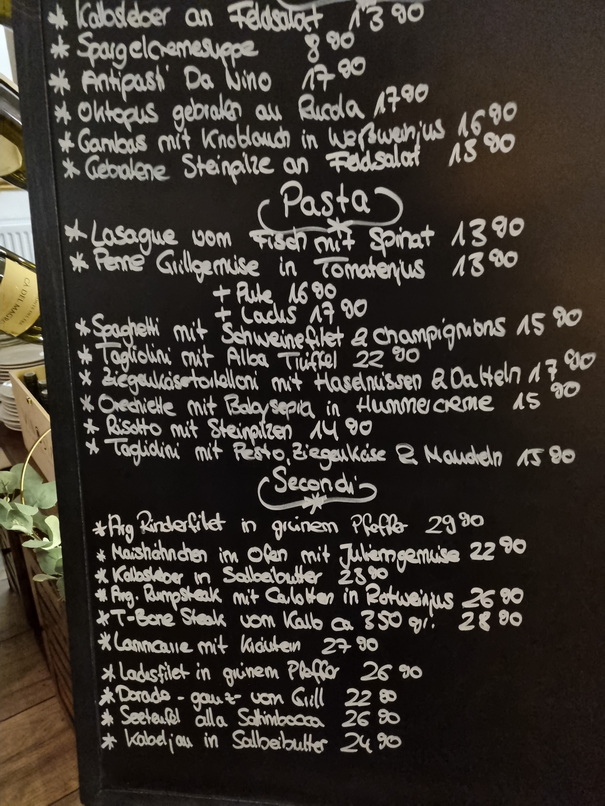 * Kalbsleber an Feldsalat 13 90
* Spargelcremesuppe 8 90
* Antipasti Da Nino 17 90
* Oktopus gebraten an Rucola 17 90
* Gambas mit Knoblauch in Weißweinjus 16 90
* Gebratene Steinpilze an Feldsalat 13 90
Pasta
* Lasagne vom Fisch mit Spinat 13 90
* Penne Grillgemüse in Tomatenjus 13 90
+ Pute 16 90
+ Lachs 17 90
* Spaghetti mit Schweinefilet & Champignons 15 90
* Tagliolini mit Alba Trüffel 22 90
* Ziegenkäsetortelloni mit Haselnüssen & Datteln 17 90
* Orechiette mit Babysepia in Hummercreme 15 90
* Risotto mit Steinpilzen 14 90
* Tagliolini mit Pesto, Ziegenkäse & Mandeln 15 90
Secondi
* Arg Rinderfilet in grünem Pfeffer 29 90
* Maishähnchen im Ofen mit Julienngemüse 22 90
* Kalbsleber in Salbeibutter 23 90
* Arg. Rumpsteak mit Carlotten in Rotweinjus 26 90
* T-Bone Steak vom Kalb ca 350 gr. 28 90
* Lammcarre mit Kräutern 27 90
* Lachsfilet in grünem Pfeffer 26 90
* Dorade - ganz vom Grill 22 90
* Seeteufel alla Saltimbocca 26 90
* Kabeljau in Salbeibutter 24 90
CA DEL MAGRO